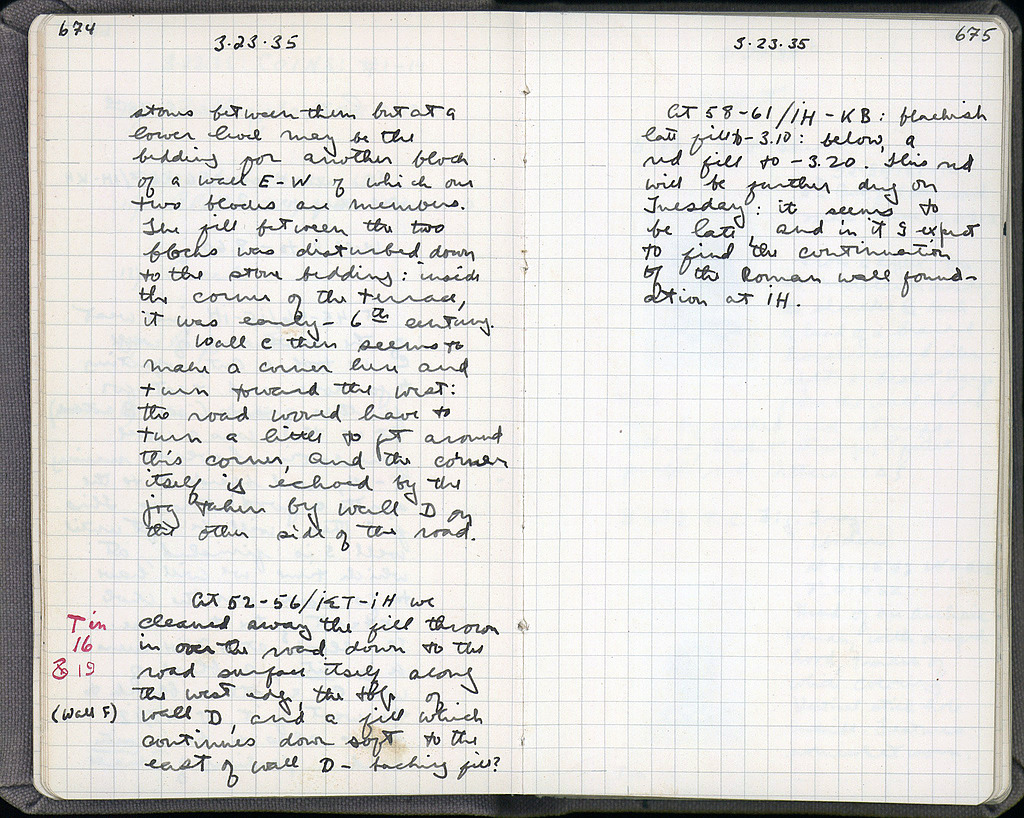 674
3·23·35
stones between them but at a
lower level may be the
bedding for another block
of a wall E-W of which our
two blocks are members.
The fill between the two
blocks was disturbed down
to the stone bedding: inside
the corner of the terrace,
it was early - 6th century.
Wall C then seems to
make a corner here and
turn toward the west:
the road would have to
turn a little to get around
this corner, and the corner
itself is echoed by the
jog taken by wall D on
the other side of the road.
At 52-56/ΙΣΤ-ΙΗ we
cleaned away the fill thrown
in over the road down to the
road surface itself along
the west edge, the top of
wall D, and a fill which
continues down soft to the
east of wall D - backing fill?
T in
16
& 19
(Wall F)
675
3·23·35
At 58-61/ΙΗ-ΚΒ: blackish
late fill to -3.10: below, a
red fill to -3.20. This red
will be further dug on
Tuesday: it seems to
be late, and in it I expect
to find the continuation
of the Roman wall found-
ation at ΙΗ.